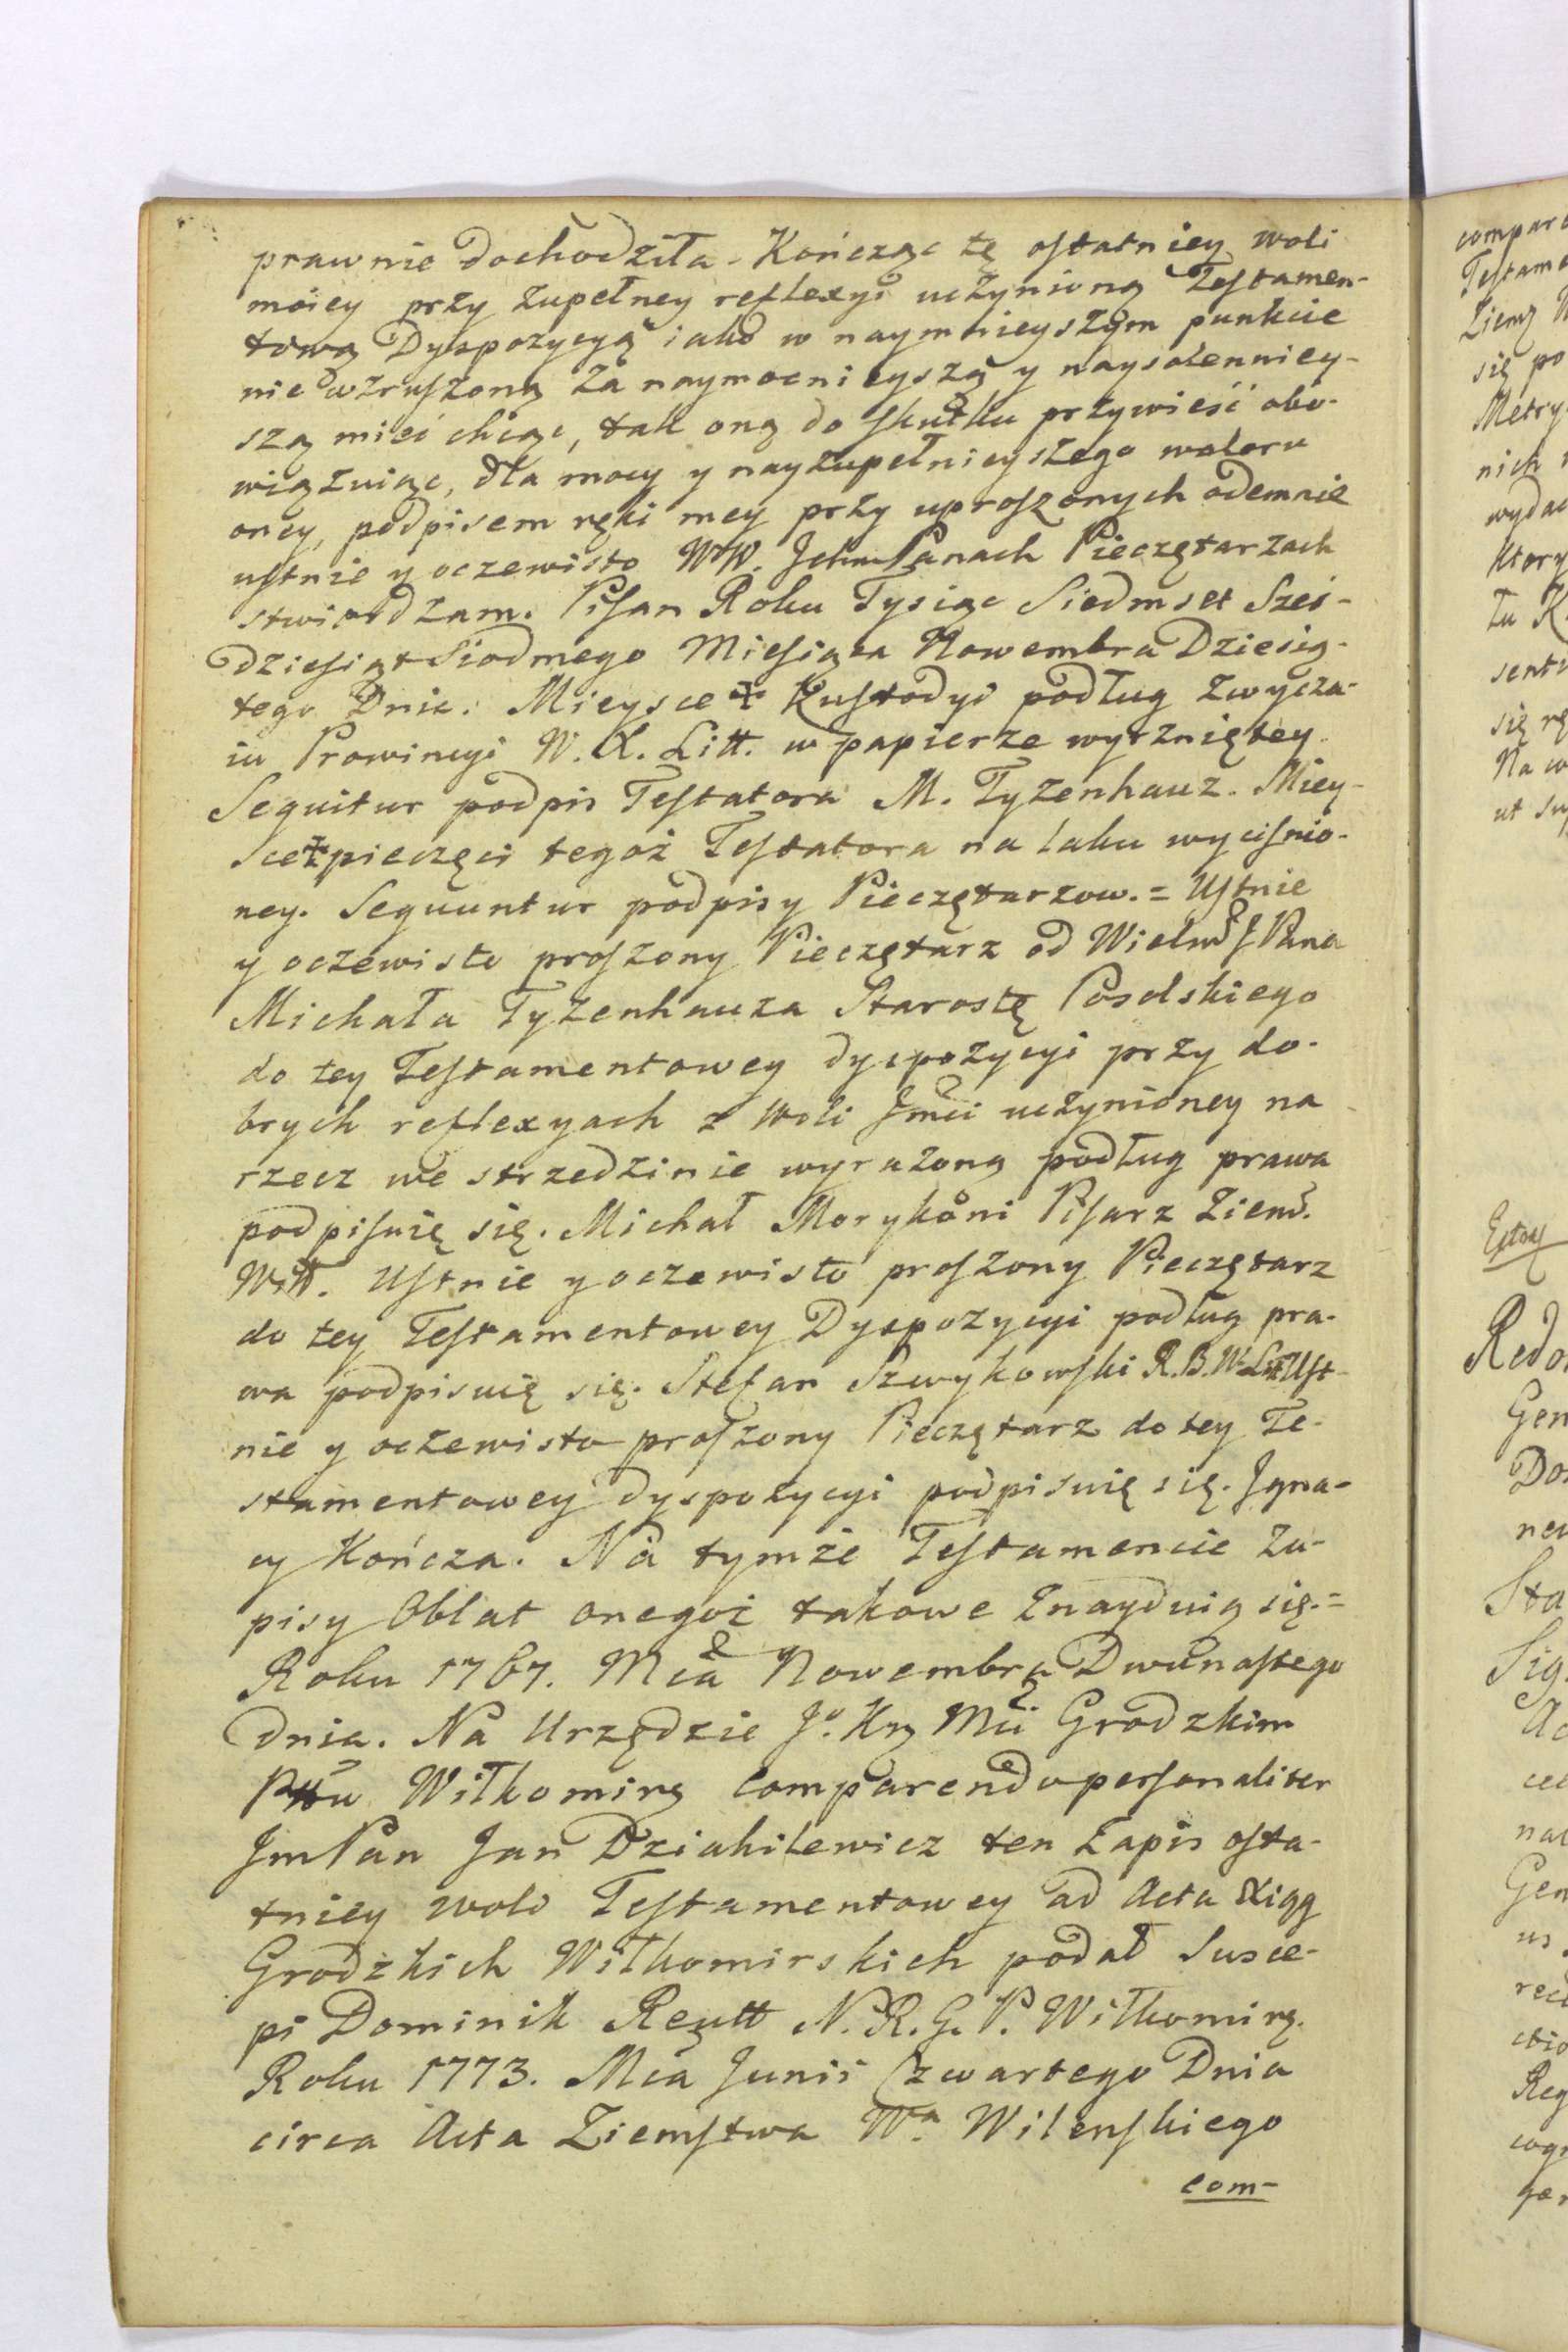 prawnie dochodziła. Kończąc tę ostatniey woli
moiey przy zupełney reflexyi uczynioną Testamen-
tową Dyspozycyą iako w naymnieyszym punkcie
nie wzruszoną za naymocnieyszą y naysolenniey-
szą mieć chcąc, tak oną do skutku przywieść obo-
wiązuiąc, dla mocy y nayzupełnieyszego waloru
oney, podpisem ręki mey przy uproszonych odemnie
ustnie y oczewisto WW. Ichm Panach Pieczętarzach
stwierdzam. Pisan Roku Tysiąc Siedmset Sześ-
dziesiąt Siodmego Miesiąca Nowembra Dziesią-
tego Dnia. Mieysce ‡ Kustodyi podług zwycza-
iu Prowincyi W. X. Litt. w papierze wyrzniętey.
Sequitur podpis Testatora M. Tyzenhauz. Miey-
sce ‡ pieczęci tegoż Testatora na laku wycisnio-
ney. Sequuntur podpisy Pieczętarzow. = Ustnie
y oczewisto proszony Pieczętarz od Wielm J Pana
Michała Tyzenhauza Starostę Poselskiego
do tey Testamentowey dyspozycyi przy do-
brych reflexyach z woli Jmci uczynioney na
rzecz we strzedzinie wyrażoną podług prawa
podpisuię się. Michał Morykoni Pisarz Ziem.
Wił. Ustnie y oczewisto proszony Pieczętarz
do tey Testamentowey Dyspozycyi podług pra-
wa podpisuię się. Stefan Szwykowski R. B. W. Litt. Ust-
nie y oczewisto proszony Pieczętarz do tey Te-
stamentowey dyspozycyi podpisuię się. Igna-
cy Kończa. Na tymże Testamencie za-
pisy Oblat onegoż takowe znayduią się. =
Roku 1767. Mca Nowembra Dwunastego
dnia. Na Urzędzie Jo. Kr Mci Grodzkim
Pttu Wiłkomirs comparendo personaliter
Jm Pan Jan Dziakilewicz ten Zapis osta-
tniey woli Testamentowey ad Acta Xiąg
Grodzkich Wiłkomirskich podał Susce-
pi Dominik Reutt N. R. G. P. Wiłkomirs.
Roku 1773. Mca Junii Czwartego Dnia
circa Acta Ziemstwa Wa. Wilenskiego
com-